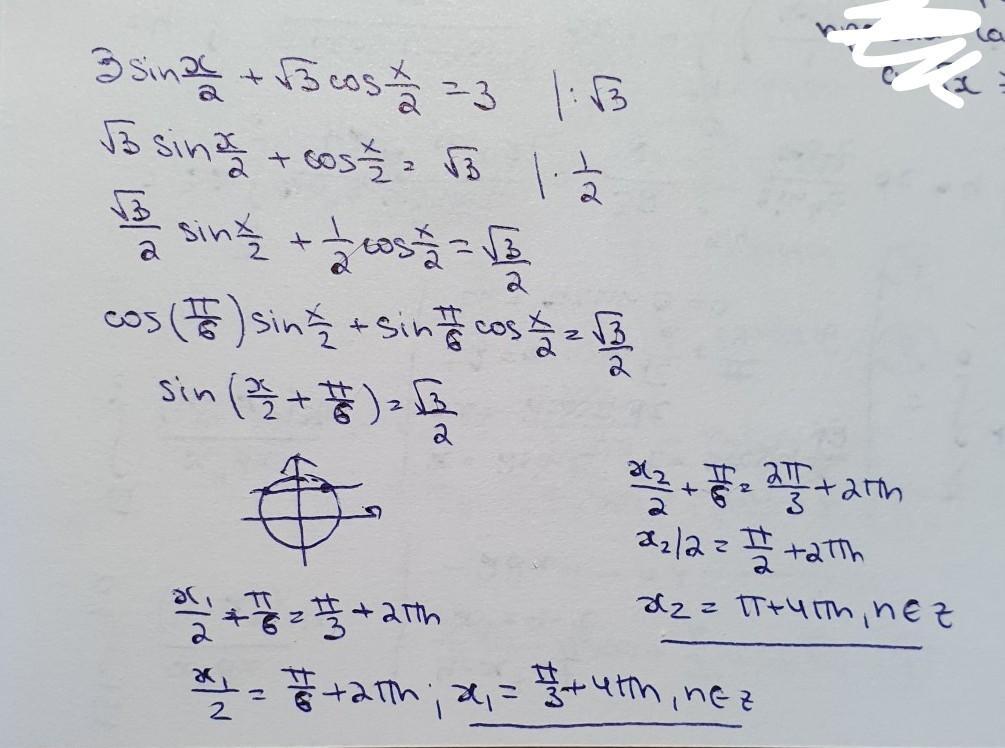 3 sin x/2 + √3 cos x/2 = 3 |: √3
√3 sin x/2 + cos x/2 = √3 |· 1/2
√3/2 sin x/2 + 1/2 cos x/2 = √3/2
cos(π/6) sin x/2 + sin π/6 cos x/2 = √3/2
sin (x/2 + π/6) = √3/2
x₁/2 + π/6 = π/3 + 2πn
x₁/2 = π/6 + 2πn ; x₁ = π/3 + 4πn, n ∈ z
x₂/2 + π/6 = 2π/3 + 2πn
x₂/2 = π/2 + 2πn
x₂ = π + 4πn, n ∈ z